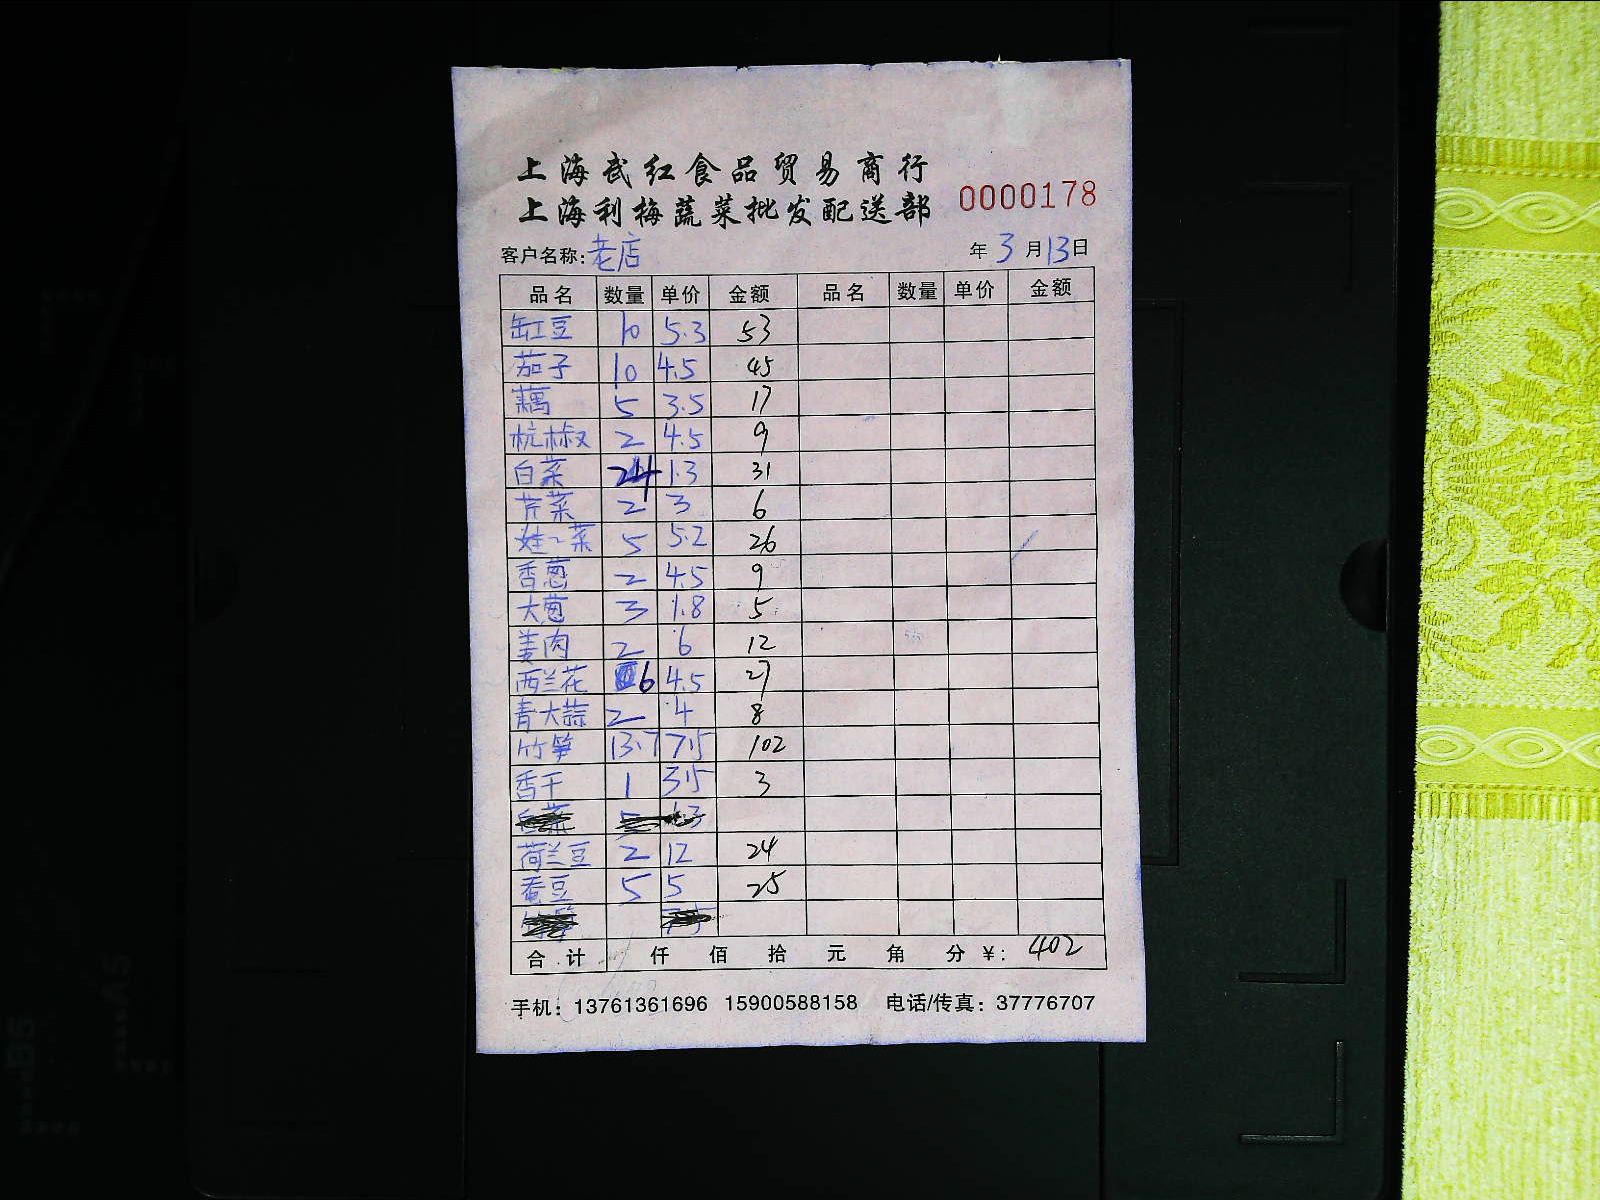 上海武红食品贸易商行
上海利梅蔬菜批发配送部 0000178
客户名称:老店 年 3 月 13 日
品名 数量 单价 金额 品名 数量 单价 金额
缸豆 10 5.3 53
茄子 10 4.5 45
藕 5 3.5 17
杭椒 2 4.5 9
白菜 24 1.3 31
芹菜 2 3 6
娃~菜 5 5.2 26
香葱 2 4.5 9
大葱 3 1.8 5
姜肉 2 6 12
西兰花 6 4.5 27
青大蒜 2 4 8
竹笋 13.7 7.5 102
香干 1 3.5 3
荷兰豆 2 12 24
蚕豆 5 5 25
合计 仟 佰 拾 元 角 分 ¥: 402
手机: 13761361696 15900588158 电话/传真: 37776707